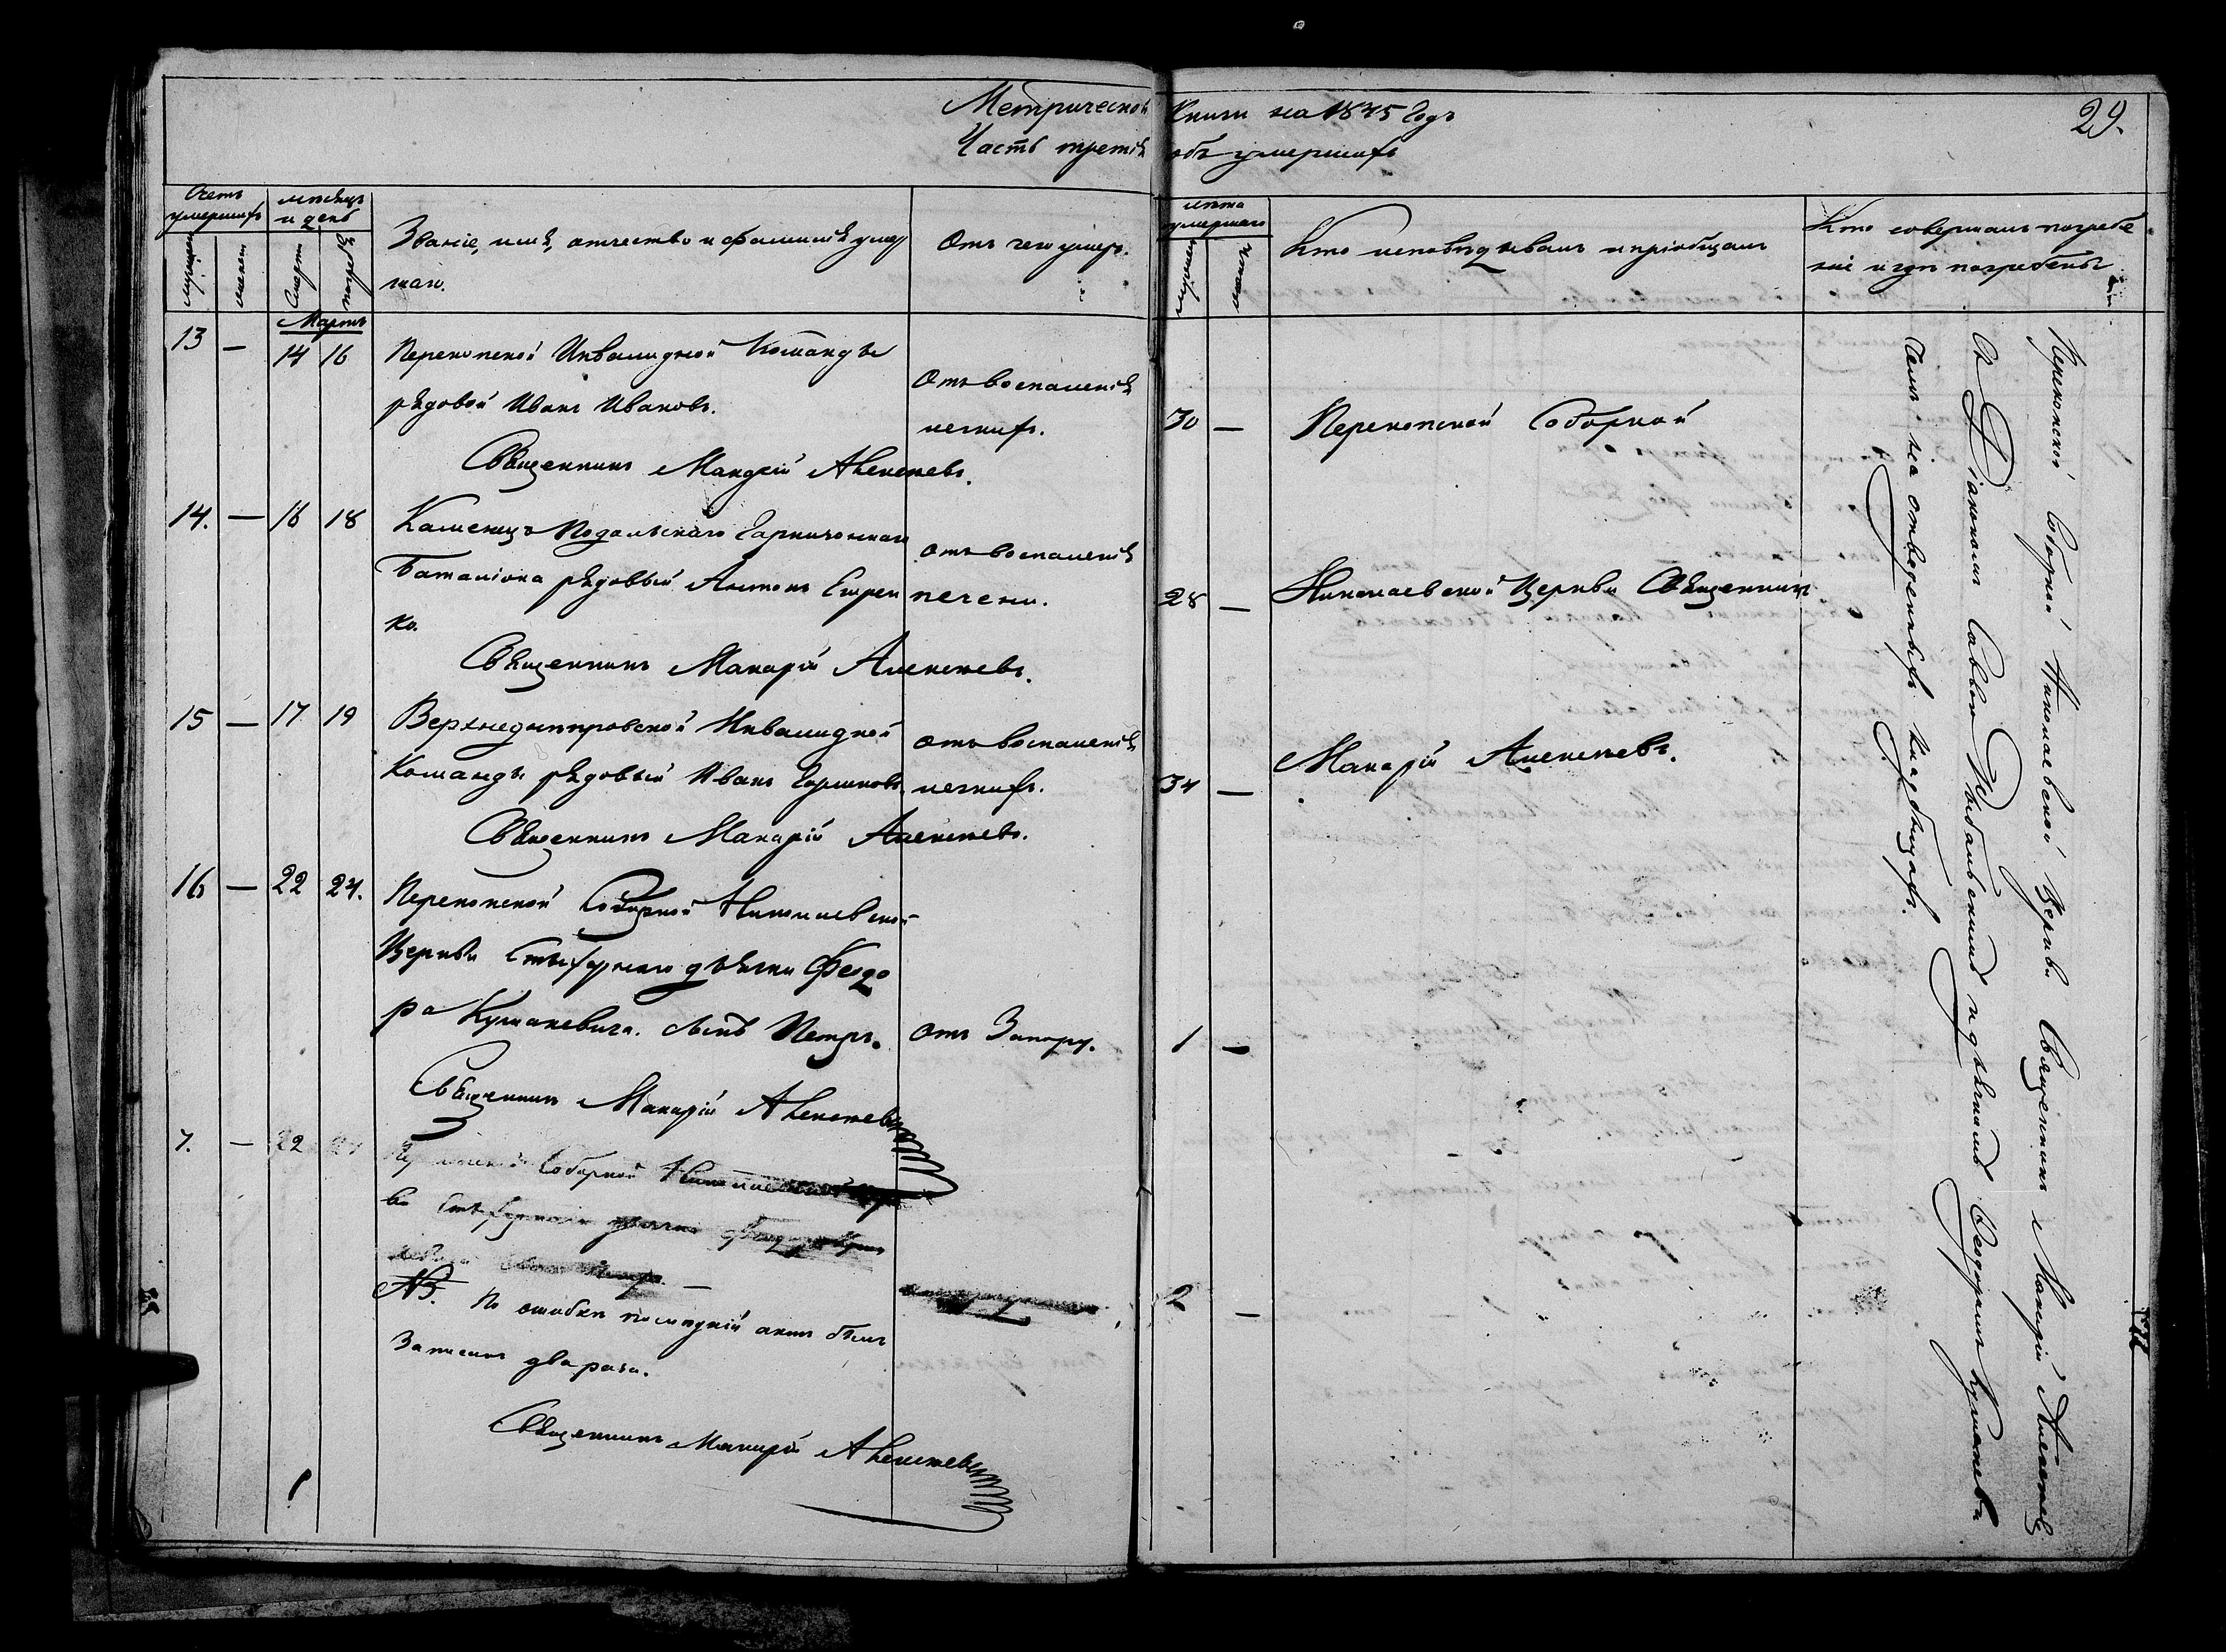 Метрической Книги на 1845 Годъ
29.
Часть третія объ умершихъ
Счетъ умершихъ
мѣсяцъ и день
Званіе, имя, отчество и фамилія умер
шаго.
Отъ чего умеръ.
лѣта умершаго
Кто исповѣдывалъ и пріобщалъ
Кто совершалъ погребе
ніе и гдѣ погребены
мужеска
женска
Смерти
погребен
мужеска
женска
Мартъ
13 — 14 16 Перекопской Инвалидной Команды
рядовой Иванъ Ивановъ.
Отъ воспаленія
легкихъ.
30 — Перекопской Соборной
Священникъ Макарій Алексѣевъ.
14. — 16 18 Каменецъ Подольскаго Гарнизоннаго
Баталіона рядовый Антонъ
ко.
отъ воспаленія
печени.
28 — Николаевской Церкви Священникъ
Священникъ Макарій Алексѣевъ.
15 — 17 19 Верхнеднѣпровской Инвалидной
Команды рядовый Иванъ
отъ воспаленія
легкихъ.
34 — Макарій Алексѣевъ.
Священникъ Макарій Алексѣевъ.
16 — 22 24. Перекопской Соборной Николаевской
Церкви Стихарнаго дьячка Федо
ра Кумановича. сынъ Петръ. отъ Запору. 1 —
Священникъ Макарій Алексѣевъ
7. — 22 24 Перекопской Соборной Николаевской
ви Стихарнаго дьячка
сынъ Петръ. —
2 —
NB. По ошибкѣ послѣдній актъ былъ
Записанъ два раза.
Священникъ Макарій Алексѣевъ
Перекопской Соборной Николаевской Церкви Священникъ Макарій Алексѣевъ
Съ Діакономъ Саввою и дьячкомъ Феодоромъ
Тамъ на отведенныхъ кладбищахъ.